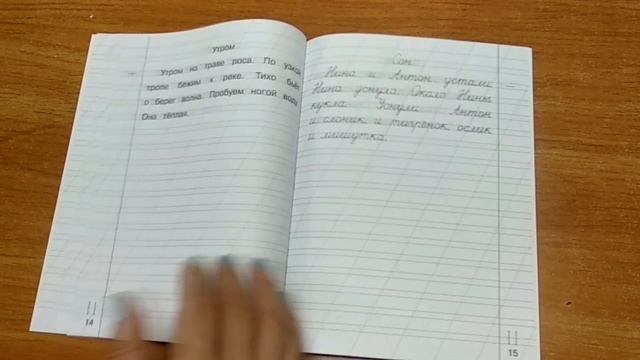 Утром
Утром на траве роса. По узкой
тропе бежим к реке. Тихо бьёт
о берег волна. Пробуем ногой воду.
Она тёплая.
14
Сон
Нина и Антон устали
Нина уснула. Около Нины
кукла. Уснули Антон
и слоник и тигрёнок ослик
и мишутка.
15